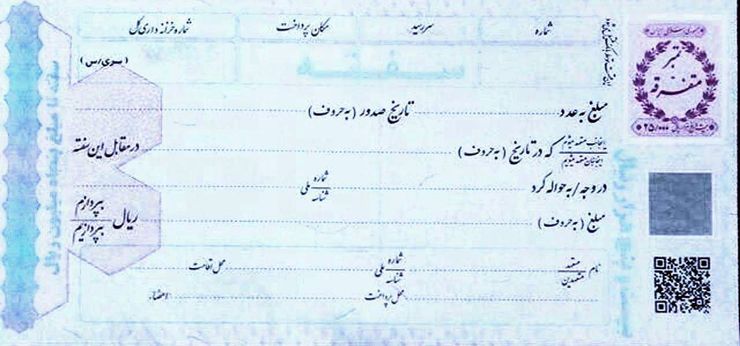 شماره سررسید مکان پرداخت شماره خزانه داری کل
سفته
(سری/س)
مبلغ به عدد تاریخ صدور (به حروف)
اینجانب متعهد میشوم
اینجانبان متعهد میشویم
که در تاریخ (به حروف) در مقابل این سفته
در وجه/به حواله کرد شماره ملی
شناسه
مبلغ (به حروف) ریال بپردازم
بپردازیم
نام متعهد شماره ملی محل اقامت
متعهدین شناسه
محل پرداخت امضاء:
سفته تا مبلغ پنجاه میلیون ریال
تمبر
متفرقه
۲۵/۰۰۰